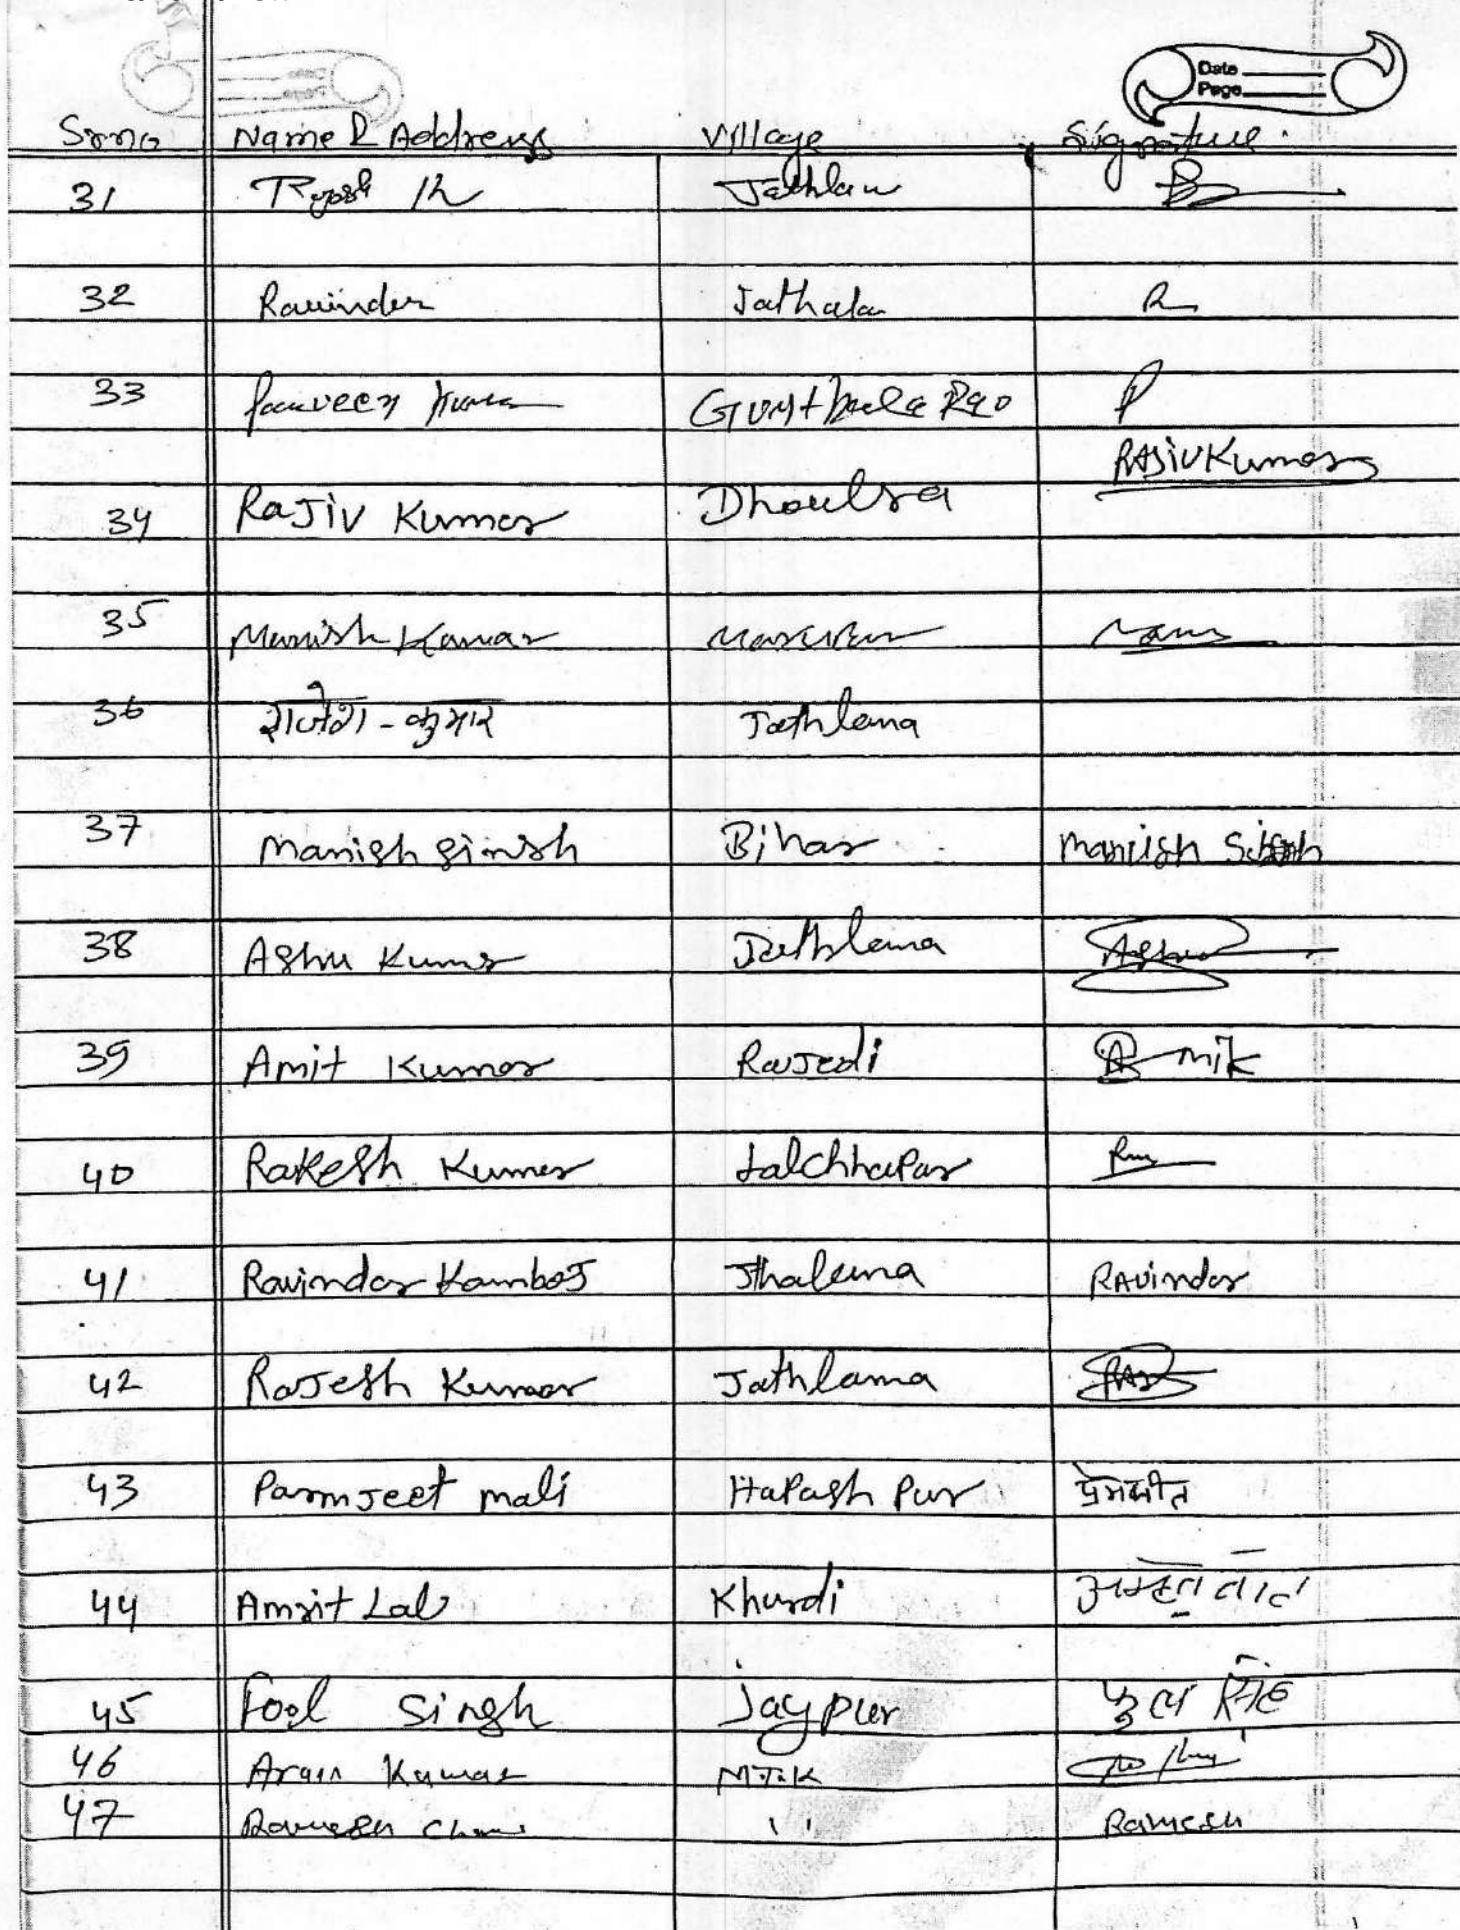 Date
Page
Srno Name & Address Village Signature
31
32 Ravinder Jathala R
33 Parveen Kumar Gumthala Rao P
RAJIV Kumar
34 RaJiv Kumar Dhoulra
35 Manish Kumar
36 राजेश - कुमार Jathlana
37 Manish Sinsh Bihar Manish
38 Ashu Kumar Jathlana Ashu
39 Amit Kumar RaJedi
40 RaKesh Kumar LalChhaPar
41 Ravindar KamboJ Jthalana RAvindar
42 RaJesh Kumar Jathlana
43 ParmJeet mali HaPash Pur प्रेमजीत
44 Amrit Lal Khurdi
45 Fool Singh Jaypur फुल सिंह
46 Arun Kumar M.T.K
47 Ramesh '' Ramesh